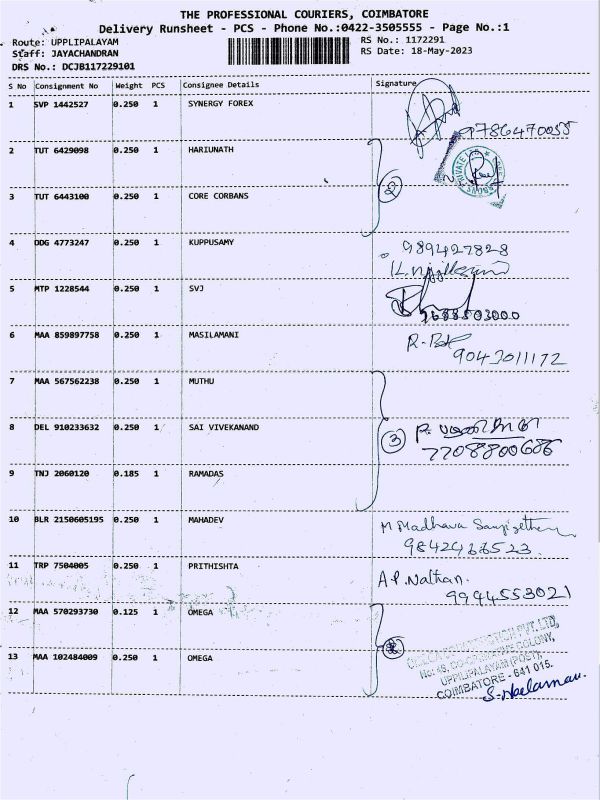 THE PROFESSIONAL COURIERS, COIMBATORE
Delivery Runsheet - PCS - Phone No.:0422-3505555 - Page No.:1
Route: UPPLIPALAYAM RS No.: 1172291
Staff: JAYACHANDRAN RS Date: 18-May-2023
DRS No.: DCJB117229101
S No Consignment No Weight PCS Consignee Details Signature
1 SVP 1442527 0.250 1 SYNERGY FOREX
9786470055
2 TUT 6429098 0.250 1 HARIUNATH
2
3 TUT 6443100 0.250 1 CORE CORBANS
4 ODG 4773247 0.250 1 KUPPUSAMY
989427828
5 MTP 1228544 0.250 1 SVJ
7688503000
6 MAA 859897758 0.250 1 MASILAMANI
9043011172
7 MAA 567562238 0.250 1 MUTHU
8 DEL 910233632 0.250 1 SAI VIVEKANAND
3
7708800686
9 TNJ 2060120 0.185 1 RAMADAS
10 BLR 2150605195 0.250 1 MAHADEV
M Madhava
11 TRP 7504005 0.250 1 PRITHISHTA
A.P. Nathan.
9994553021
12 MAA 570293730 0.125 1 OMEGA
2
PVT. LTD,
COLONY,
13 MAA 102484009 0.250 1 OMEGA
UPPILIPALAYAM (POST),
COIMBATORE - 641 015.